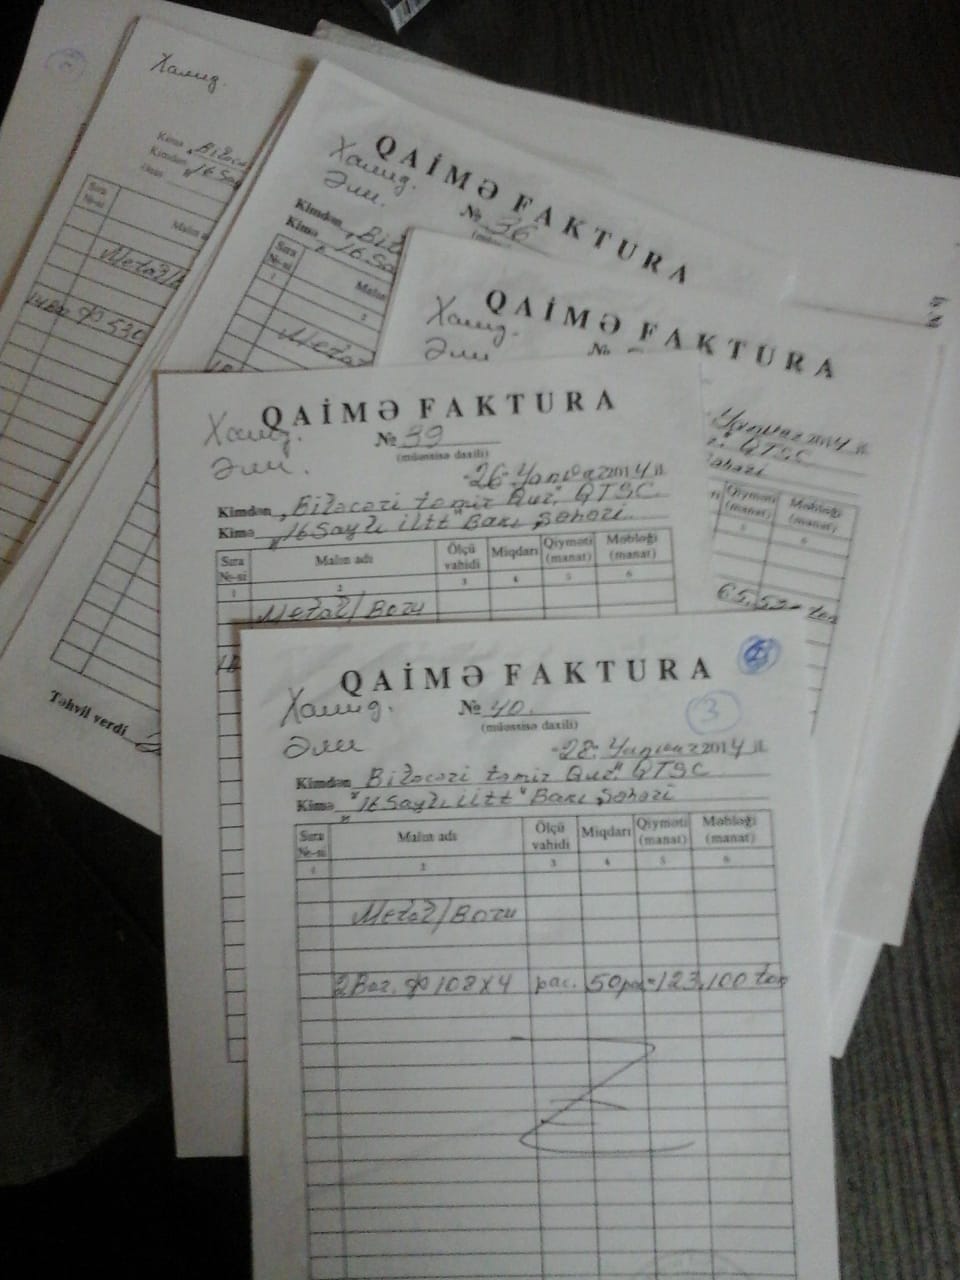 Хамид.
Kimə
Kimdən
Sıra
№-si
Malın a
Metal/
QAİMƏ FAKTURA
Хамид.
Әли.
№ 36
Kimdən
Kimə "16 Sa
Sıra
№-si
Malın
1
2
Meta
Təhvil verdi
QAİMƏ FAKTURA
Хамид.
Әли
№
Yanvar 2014 il.
QTSC
Qiyməti
(manat)
Məbləği
(manat)
5
6
QAİMƏ FAKTURA
Хамид.
Әли.
№ 39
(müəssisə daxili)
"26" Yanvar 2014 il.
Kimdən "Biləcəri təmir Qur." QTSC
Kimə "16 Saylı İİtt" Bakı Şəhəri.
Sıra
№-si
Malın adı
Ölçü
vahidi
Miqdarı
Qiyməti
(manat)
Məbləği
(manat)
1
2
3
4
5
6
Metal/Boru
QAİMƏ FAKTURA
Хамид.
Әли
№ 40.
(müəssisə daxili)
3
"28" Yanvar 2014 il.
Kimdən Biləcəri təmir Qur." QTSC
Kimə "16 Saylı İİtt" Bakı Şəhəri
Sıra
№-si
Malın adı
Ölçü
vahidi
Miqdarı
Qiyməti
(manat)
Məbləği
(manat)
1
2
3
4
5
6
Metal/Boru
108x4
123,100 ton